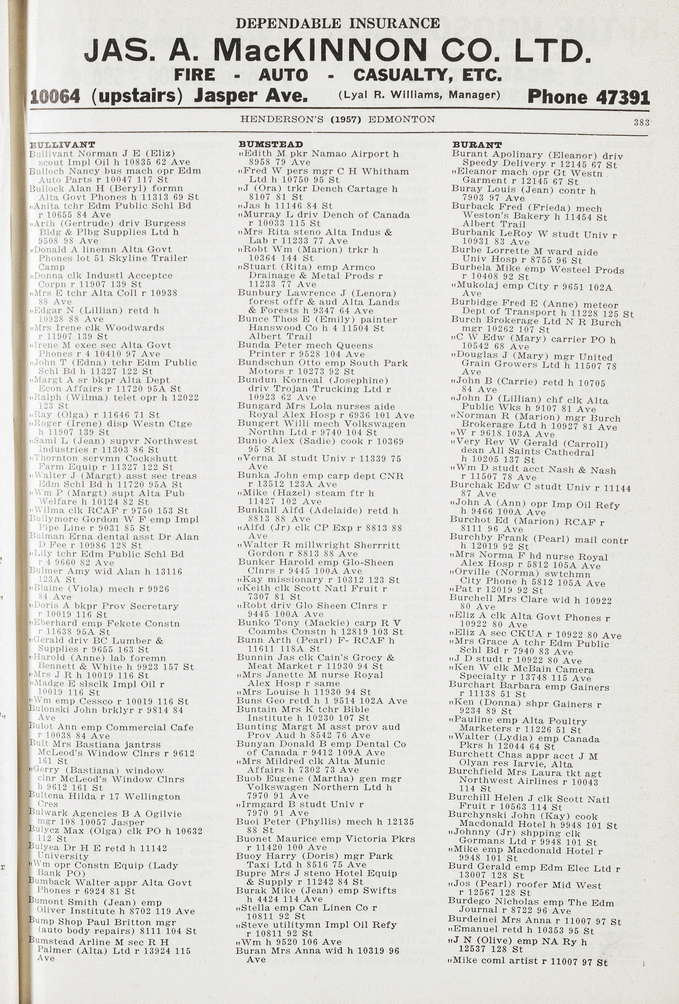 DEPENDABLE INSURANCE
JAS. A. MacKINNON CO. LTD.
FIRE - AUTO - CASUALTY, ETC.
10064 (upstairs) Jasper Ave. (Lyal R. Williams, Manager) Phone 47391
HENDERSON'S (1957) EDMONTON 383
BULLIVANT
Bullivant Norman J E (Eliz)
scout Impl Oil h 10835 62 Ave
Bulloch Nancy bus mach opr Edm
Auto Parts r 10047 117 St
Bullock Alan H (Beryl) formn
Alta Govt Phones h 11313 69 St
"Anita tchr Edm Public Schl Bd
r 10655 84 Ave
"Arth (Gertrude) driv Burgess
Bldg & Plbg Supplies Ltd h
9508 98 Ave
"Donald A linemn Alta Govt
Phones lot 51 Skyline Trailer
Camp
"Donna clk Industl Acceptce
Corpn r 11907 139 St
"Mrs E tchr Alta Coll r 10938
88 Ave
"Edgar N (Lillian) retd h
10928 88 Ave
"Mrs Irene clk Woodwards
r 11907 139 St
"Irene M exec sec Alta Govt
Phones r 4 10410 97 Ave
"John T (Edna) tchr Edm Public
Schl Bd h 11327 122 St
"Margt A sr bkpr Alta Dept
Econ Affairs r 11720 95A St
"Ralph (Wilma) telet opr h 12022
123 St
"Ray (Olga) r 11646 71 St
"Roger (Irene) disp Westn Ctge
h 11907 139 St
"Saml L (Jean) supvr Northwest
Industries r 11303 86 St
"Thornton servmn Cockshutt
Farm Equip r 11327 122 St
"Walter J (Margt) asst sec treas
Edm Schl Bd h 11720 95A St
"Wm P (Margt) supt Alta Pub
Welfare h 10124 82 St
"Wilma clk RCAF r 9750 153 St
Bullymore Gordon W F emp Impl
Pipe Line r 9031 85 St
Bulman Erna dental asst Dr Alan
D Fee r 10986 128 St
"Lily tchr Edm Public Schl Bd
r 4 9660 82 Ave
Bulmer Amy wid Alan h 13116
123A St
"Blaine (Viola) mech r 9926
84 Ave
"Doris A bkpr Prov Secretary
r 10019 116 St
"Eberhard emp Fekete Constn
r 11638 95A St
"Gerald driv BC Lumber &
Supplies r 9655 163 St
"Harold (Anne) lab foremn
Bennett & White h 9923 157 St
"Mrs J R h 10019 116 St
"Madge E slsclk Impl Oil r
10019 116 St
"Wm emp Cessco r 10019 116 St
Bulonski John brklyr r 9814 84
Ave
Bulot Ann emp Commercial Cafe
r 10038 84 Ave
Bult Mrs Bastiana jantrss
McLeod's Window Clnrs r 9612
161 St
"Gerry (Bastiana) window
clnr McLeod's Window Clnrs
h 9612 161 St
Bultena Hilda r 17 Wellington
Cres
Bulwark Agencies B A Ogilvie
mgr 108 10057 Jasper
Bulycz Max (Olga) clk PO h 10632
112 St
Bulyea Dr H E retd h 11142
University
"Wm opr Constn Equip (Lady
Bank PO)
Bumback Walter appr Alta Govt
Phones r 6924 81 St
Bumont Smith (Jean) emp
Oliver Institute h 8702 119 Ave
Bump Shop Paul Britton mgr
(auto body repairs) 8111 104 St
Bumstead Arline M sec R H
Palmer (Alta) Ltd r 13924 115
Ave
BUMSTEAD
"Edith M pkr Namao Airport h
8958 79 Ave
"Fred W pers mgr C H Whitham
Ltd h 10750 95 St
"J (Ora) trkr Dench Cartage h
8107 81 St
"Jas h 11146 84 St
"Murray L driv Dench of Canada
r 10033 115 St
"Mrs Rita steno Alta Indus &
Lab r 11233 77 Ave
"Robt Wm (Marion) trkr h
10364 144 St
"Stuart (Rita) emp Armco
Drainage & Metal Prods r
11233 77 Ave
Bunbury Lawrence J (Lenora)
forest offr & aud Alta Lands
& Forests h 9347 64 Ave
Bunce Thos E (Emily) painter
Hanswood Co h 4 11504
Albert Trail
Bunda Peter mech Queens
Printer r 9528 104 Ave
Bundschun Otto emp South Park
Motors r 10273 92 St
Bundun Korneal (Josephine)
driv Trojan Trucking Ltd r
10923 62 Ave
Bungard Mrs Lola nurses aide
Royal Alex Hosp r 6936 101 Ave
Bungert Willi mech Volkswagen
Northn Ltd r 9740 104 St
Bunio Alex (Sadie) cook r 10369
95 St
"Verna M studt Univ r 11339 75
Ave
Bunka John emp carp dept CNR
r 13512 123A Ave
"Mike (Hazel) steam ftr h
11427 102 Ave
Bunkall Alfd (Adelaide) retd h
8813 88 Ave
"Alfd (Jr) clk CP Exp r 8813 88
Ave
"Walter R millwright Sherrritt
Gordon r 8813 88 Ave
Bunker Harold emp Glo-Sheen
Clnrs r 9445 100A Ave
"Kay missionary r 10312 123 St
"Keith clk Scott Natl Fruit r
7307 81 St
"Robt driv Glo Sheen Clnrs r
9445 100A Ave
Bunko Tony (Mackie) carp R V
Coambs Constn h 12819 103 St
Bunn Arth (Pearl) F- RCAF h
11611 118A St
Bunnin Jas clk Cain's Grocy &
Meat Market r 11930 94 St
"Mrs Janette M nurse Royal
Alex Hosp r same
"Mrs Louise h 11930 94 St
Buns Geo retd h 1 9514 102A Ave
Buntain Mrs K tchr Bible
Institute h 10230 107 St
Bunting Margt M asst prov aud
Prov Aud h 8542 76 Ave
Bunyan Donald B emp Dental Co
of Canada r 9412 109A Ave
"Mrs Mildred clk Alta Munic
Affairs h 7302 73 Ave
Buob Eugene (Martha) gen mgr
Volkswagen Northern Ltd h
7970 91 Ave
"Irmgard B studt Univ r
7970 91 Ave
Buoi Peter (Phyllis) mech h 12135
88 St
Buonet Maurice emp Victoria Pkrs
r 11420 100 Ave
Buoy Harry (Doris) mgr Park
Taxi Ltd h 8516 75 Ave
Bupre Mrs J steno Hotel Equip
& Supply r 11242 84 St
Burak Mike (Jean) emp Swifts
h 4424 114 Ave
"Stella emp Can Linen Co r
10811 92 St
"Steve utilitymn Impl Oil Refy
r 10811 92 St
"Wm h 9520 106 Ave
Buran Mrs Anna wid h 10319 96
Ave
BURANT
Burant Apolinary (Eleanor) driv
Speedy Delivery r 12145 67 St
"Eleanor mach opr Gt Westn
Garment r 12145 67 St
Buray Louis (Jean) contr h
7903 97 Ave
Burback Fred (Frieda) mech
Weston's Bakery h 11454
Albert Trail
Burbank LeRoy W studt Univ r
10931 83 Ave
Burbe Lorrette M ward aide
Univ Hosp r 8755 96 St
Burbela Mike emp Westeel Prods
r 10408 92 St
"Mukolaj emp City r 9651 102A
Ave
Burbidge Fred E (Anne) meteor
Dept of Transport h 11228 125 St
Burch Brokerage Ltd N R Burch
mgr 10262 107 St
"C W Edw (Mary) carrier PO h
10542 68 Ave
"Douglas J (Mary) mgr United
Grain Growers Ltd h 11507 78
Ave
"John B (Carrie) retd h 10705
84 Ave
"John D (Lillian) chf clk Alta
Public Wks h 9107 81 Ave
"Norman R (Marion) mgr Burch
Brokerage Ltd h 10927 81 Ave
"W r 9618 103A Ave
"Very Rev W Gerald (Carroll)
dean All Saints Cathedral
h 10205 137 St
"Wm D studt acct Nash & Nash
r 11507 78 Ave
Burchak Edw C studt Univ r 11144
87 Ave
"John A (Ann) opr Imp Oil Refy
h 9466 100A Ave
Burchot Ed (Marion) RCAF r
8111 96 Ave
Burchby Frank (Pearl) mail contr
h 12019 92 St
"Mrs Norma F hd nurse Royal
Alex Hosp r 5812 105A Ave
"Orville (Norma) swtchmn
City Phone h 5812 105A Ave
"Pat r 12019 92 St
Burchell Mrs Clare wid h 10922
80 Ave
"Eliz A clk Alta Govt Phones r
10922 80 Ave
"Eliz A sec CKUA r 10922 80 Ave
"Mrs Grace A tchr Edm Public
Schl Bd r 7940 83 Ave
"J D studt r 10922 80 Ave
"Ken W clk McBain Camera
Specialty r 13748 115 Ave
Burchart Barbara emp Gainers
r 11138 51 St
"Ken (Donna) shpr Gainers r
9234 89 St
"Pauline emp Alta Poultry
Marketers r 11226 51 St
"Walter (Lydia) emp Canada
Pkrs h 12044 64 St
Burchett Chas appr acct J M
Olyan res Iarvie, Alta
Burchfield Mrs Laura tkt agt
Northwest Airlines r 10043
114 St
Burchill Helen J clk Scott Natl
Fruit r 10563 114 St
Burchynski John (Kay) cook
Macdonald Hotel h 9948 101 St
"Johnny (Jr) shpping clk
Gormans Ltd r 9948 101 St
"Mike emp Macdonald Hotel r
9948 101 St
Burd Gerald emp Edm Elec Ltd r
13007 128 St
"Jos (Pearl) roofer Mid West
r 12567 128 St
Burdego Nicholas emp The Edm
Journal r 8722 96 Ave
Burdeinei Mrs Anna r 11007 97 St
"Emanuel retd h 10353 95 St
"J N (Olive) emp NA Ry h
12537 128 St
"Mike coml artist r 11007 97 St